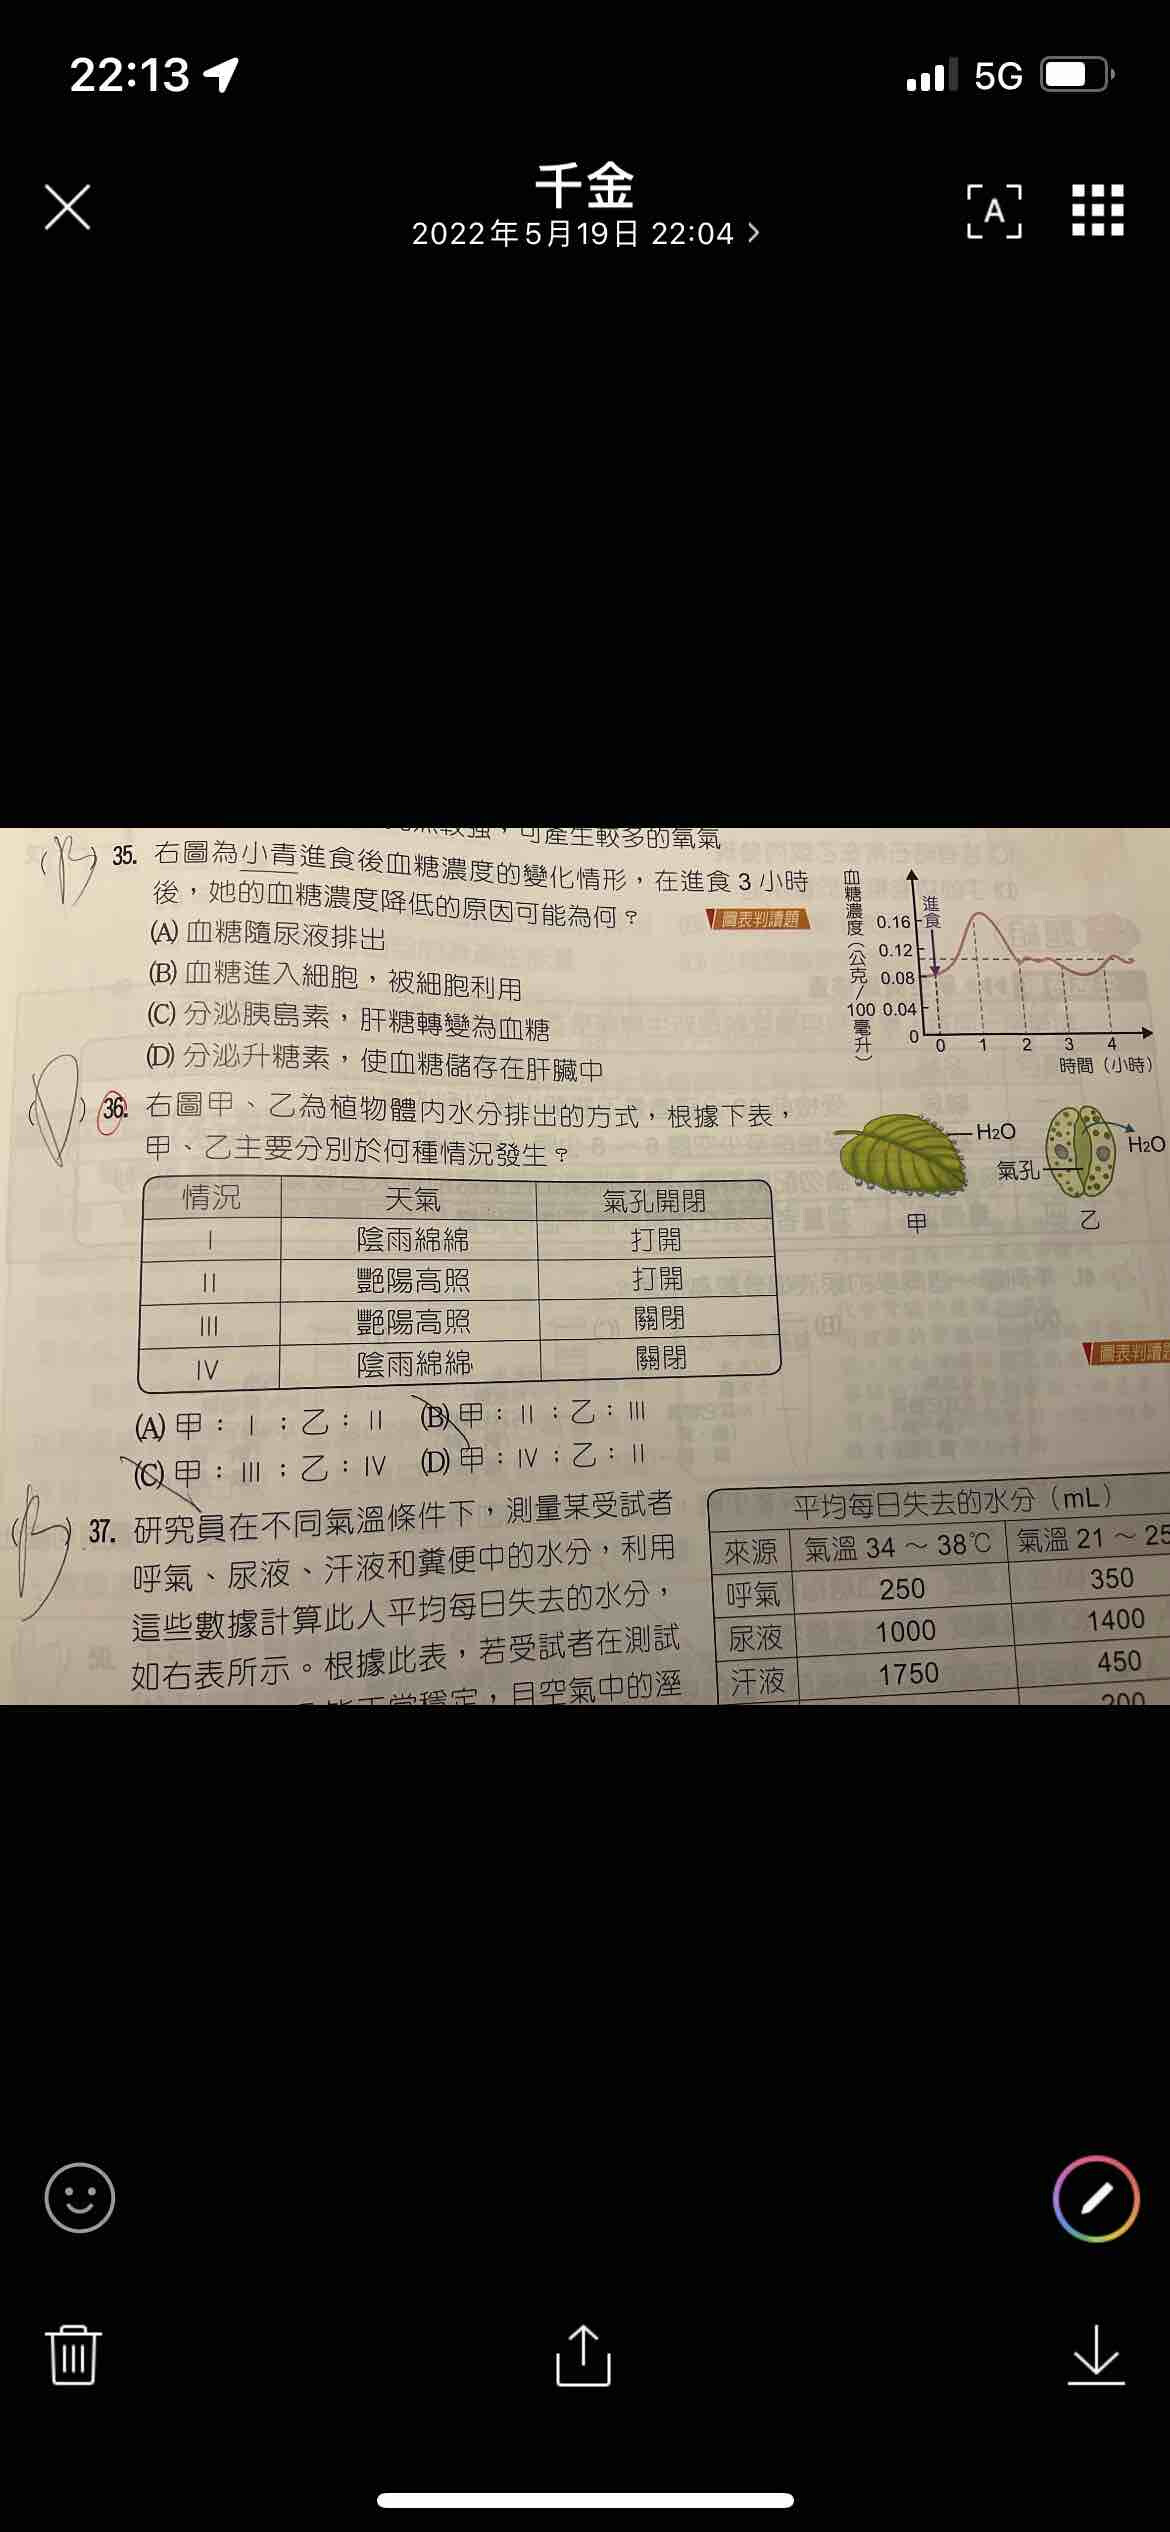 22:13
5G
千金
2022年5月19日 22:04
A
較強，可產生較多的氧氣
(B) 35. 右圖為小青進食後血糖濃度的變化情形，在進食 3 小時
後，她的血糖濃度降低的原因可能為何？
圖表判讀題
(A) 血糖隨尿液排出
(B) 血糖進入細胞，被細胞利用
(C) 分泌胰島素，肝糖轉變為血糖
(D) 分泌升糖素，使血糖儲存在肝臟中
血糖濃度（公克/100毫升）
進食
0.16
0.12
0.08
0.04
0
0 1 2 3 4
時間（小時）
(D) 36. 右圖甲、乙為植物體內水分排出的方式，根據下表，
甲、乙主要分別於何種情況發生？
H₂O
氣孔
H₂O
甲
乙
情況 天氣 氣孔開閉
I 陰雨綿綿 打開
II 艷陽高照 打開
III 艷陽高照 關閉
IV 陰雨綿綿 關閉
圖表判讀題
(A) 甲：I；乙：II (B) 甲：II；乙：III
(C) 甲：III；乙：IV (D) 甲：IV；乙：II
(B) 37. 研究員在不同氣溫條件下，測量某受試者
呼氣、尿液、汗液和糞便中的水分，利用
這些數據計算此人平均每日失去的水分，
如右表所示。根據此表，若受試者在測試
能正常穩定，且空氣中的溼
平均每日失去的水分（mL）
來源 氣溫 34 ～ 38℃ 氣溫 21 ～ 25
呼氣 250 350
尿液 1000 1400
汗液 1750 450
200